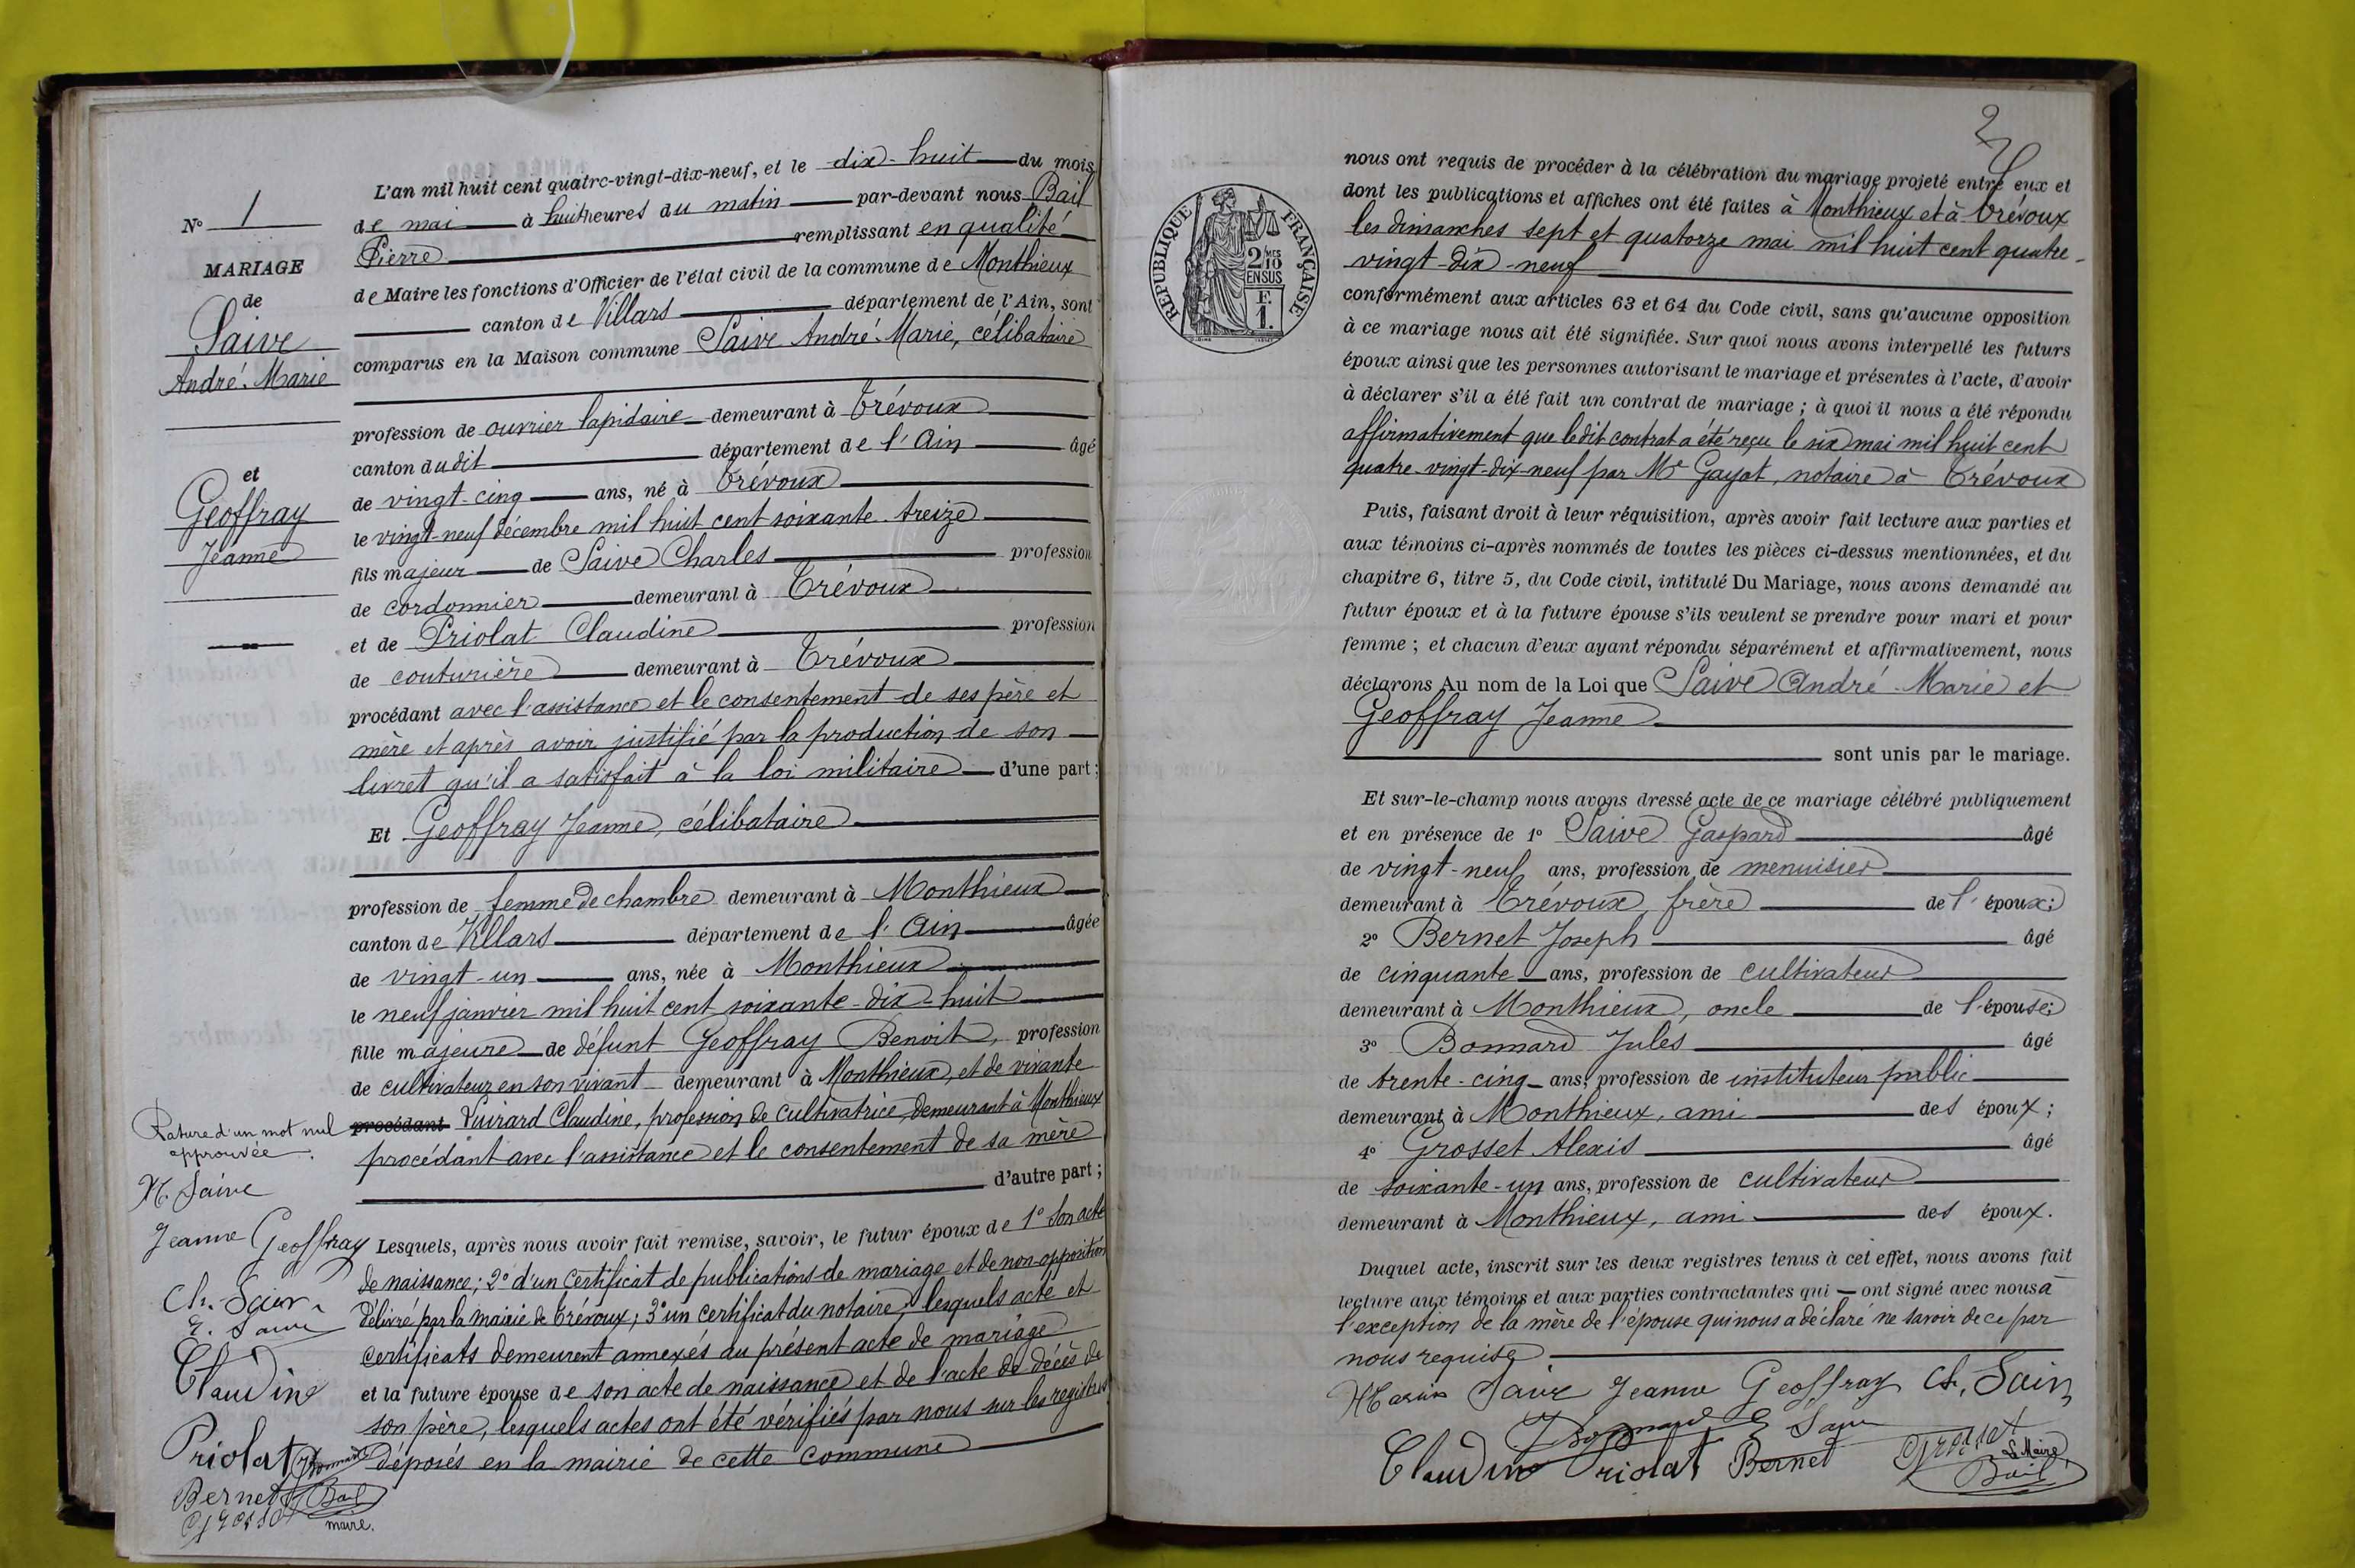 N° 1
MARIAGE
de
Saive
André-Marie
et
Geoffray
Jeanne
L'an mil huit cent quatre-vingt-dix-neuf, et le dix-huit du mois
de mai à huit heures du matin par-devant nous Bail
Pierre remplissant en qualité
de Maire les fonctions d'Officier de l'état civil de la commune de Monthieux
canton de Villars département de l'Ain, sont
comparus en la Maison commune Saive André-Marie, célibataire
profession de ouvrier lapidaire demeurant à Trévoux
canton dudit département de l'Ain âgé
de vingt-cinq ans, né à Trévoux
le vingt-neuf décembre mil huit cent soixante-treize
fils majeur de Saive Charles profession
de cordonnier demeurant à Trévoux
et de Priolat Claudine profession
de couturière demeurant à Trévoux
procédant avec l'assistance et le consentement de ses père et
mère et après avoir justifié par la production de son
livret qu'il a satisfait à la loi militaire d'une part;
Et Geoffray Jeanne, célibataire
profession de femme de chambre demeurant à Monthieux
canton de Villars département de l'Ain âgée
de vingt-un ans, née à Monthieux
le neuf janvier mil huit cent soixante-dix-huit
fille majeure de défunt Geoffray Benoit, profession
de cultivateur en son vivant demeurant à Monthieux, et de vivante
procédant Luirard Claudine, profession de cultivatrice, demeurant à Monthieux
procédant avec l'assistance et le consentement de sa mère
d'autre part;
Lesquels, après nous avoir fait remise, savoir, le futur époux de 1° son acte
de naissance; 2° d'un certificat de publications de mariage et de non-opposition
délivré par la mairie de Trévoux; 3° un certificat du notaire, lesquels acte et
certificats demeurent annexés au présent acte de mariage
et la future épouse de son acte de naissance et de l'acte de décès de
son père, lesquels actes ont été vérifiés par nous sur les registres
déposés en la mairie de cette commune
Rature d'un mot nul
approuvée.
M. Saive
Jeanne Geoffray
Ch. Saive
Saive
Claudine
Priolat Bonnard
Bernet Bail
Grosset maire.
2
RÉPUBLIQUE FRANÇAISE
2/10MES
EN SUS
F.
1.
nous ont requis de procéder à la célébration du mariage projeté entre eux et
dont les publications et affiches ont été faites à Monthieux et à Trévoux
les dimanches sept et quatorze mai mil huit cent quatre-
vingt-dix-neuf
conformément aux articles 63 et 64 du Code civil, sans qu'aucune opposition
à ce mariage nous ait été signifiée. Sur quoi nous avons interpellé les futurs
époux ainsi que les personnes autorisant le mariage et présentes à l'acte, d'avoir
à déclarer s'il a été fait un contrat de mariage; à quoi il nous a été répondu
affirmativement que ledit contrat a été reçu le six mai mil huit cent
quatre-vingt-dix-neuf par Me Gayat, notaire à Trévoux
Puis, faisant droit à leur réquisition, après avoir fait lecture aux parties et
aux témoins ci-après nommés de toutes les pièces ci-dessus mentionnées, et du
chapitre 6, titre 5, du Code civil, intitulé Du Mariage, nous avons demandé au
futur époux et à la future épouse s'ils veulent se prendre pour mari et pour
femme; et chacun d'eux ayant répondu séparément et affirmativement, nous
déclarons Au nom de la Loi que Saive André-Marie et
Geoffray Jeanne
sont unis par le mariage.
Et sur-le-champ nous avons dressé acte de ce mariage célébré publiquement
et en présence de 1° Saive Gaspard âgé
de vingt-neuf ans, profession de menuisier
demeurant à Trévoux, frère de l'époux;
2° Bernet Joseph âgé
de cinquante ans, profession de cultivateur
demeurant à Monthieux, oncle de l'épouse;
3° Bonnard Jules âgé
de trente-cinq ans, profession de instituteur public
demeurant à Monthieux, ami des époux;
4° Grosset Alexis âgé
de soixante-un ans, profession de cultivateur
demeurant à Monthieux, ami des époux.
Duquel acte, inscrit sur les deux registres tenus à cet effet, nous avons fait
lecture aux témoins et aux parties contractantes qui ont signé avec nous à
l'exception de la mère de l'épouse qui nous a déclaré ne savoir de ce par
nous requise
Marius Saive Jeanne Geoffray Ch. Saive
Bonnard G Saive
Claudine Priolat Bernet Grosset Le Maire
Bail